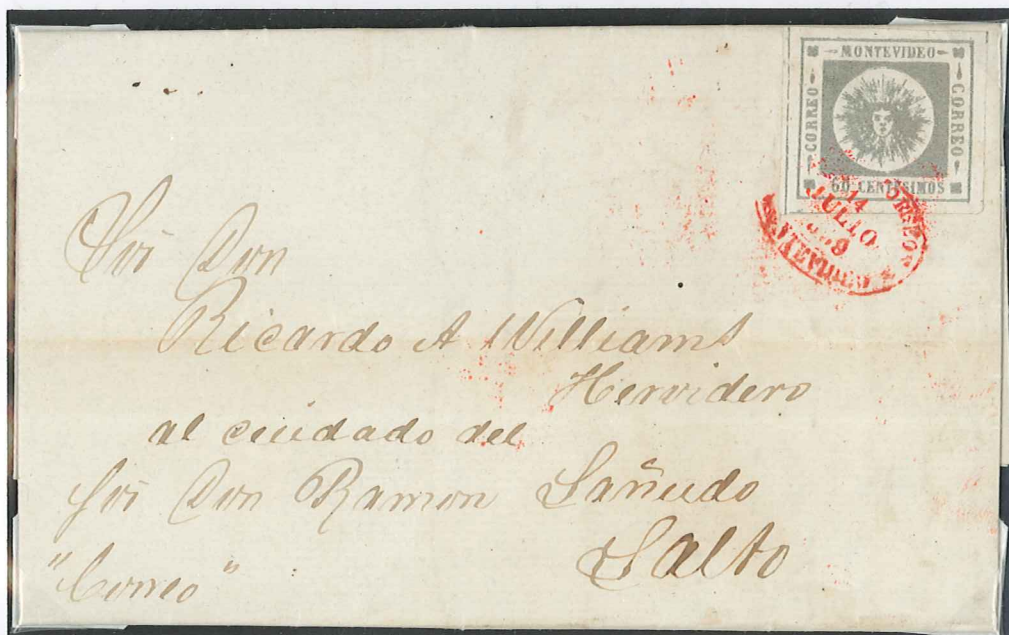 MONTEVIDEO
CORREO
CORREO
60 CENTESIMOS
14
JULIO
Sor Don
Ricardo A Williams
Hervidero
al cuidado del
Sor Don Ramon Sañudo
Salto
"Correo"